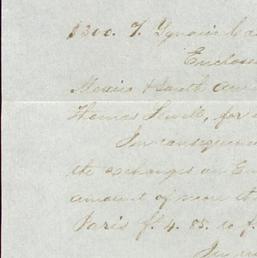 $300. T. Ignacio Ca
Enclose
Mexico & South Am
Thomas Sewell, for
In consequen
the exchanges on En
amount of more th
Paris f. 4. 85. to f.